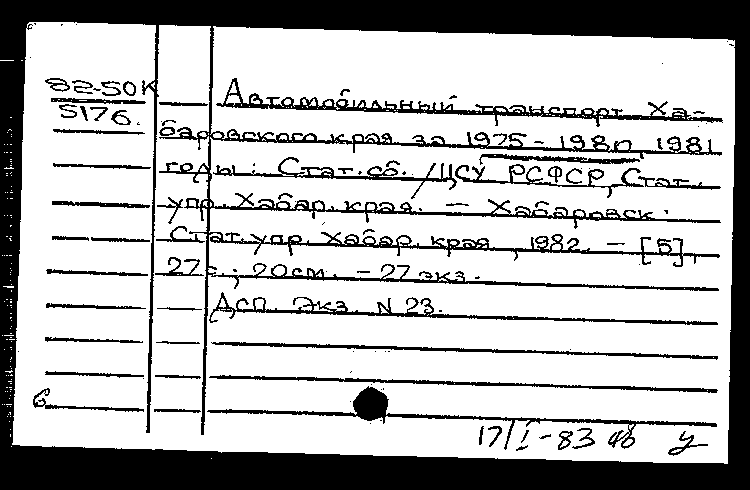 82-50К
5176.
Автомобильный транспорт Ха-
баровского края за 1975-1980, 1981
годы: Стат.сб. /ЦСУ РСФСР, Стат.
упр. Хабар. края. - Хабаровск:
Стат. упр. Хабар. края, 1982. - [5],
27с.; 20см. - 27 экз.
Дсп. Экз. N 23.
6
17/I-83